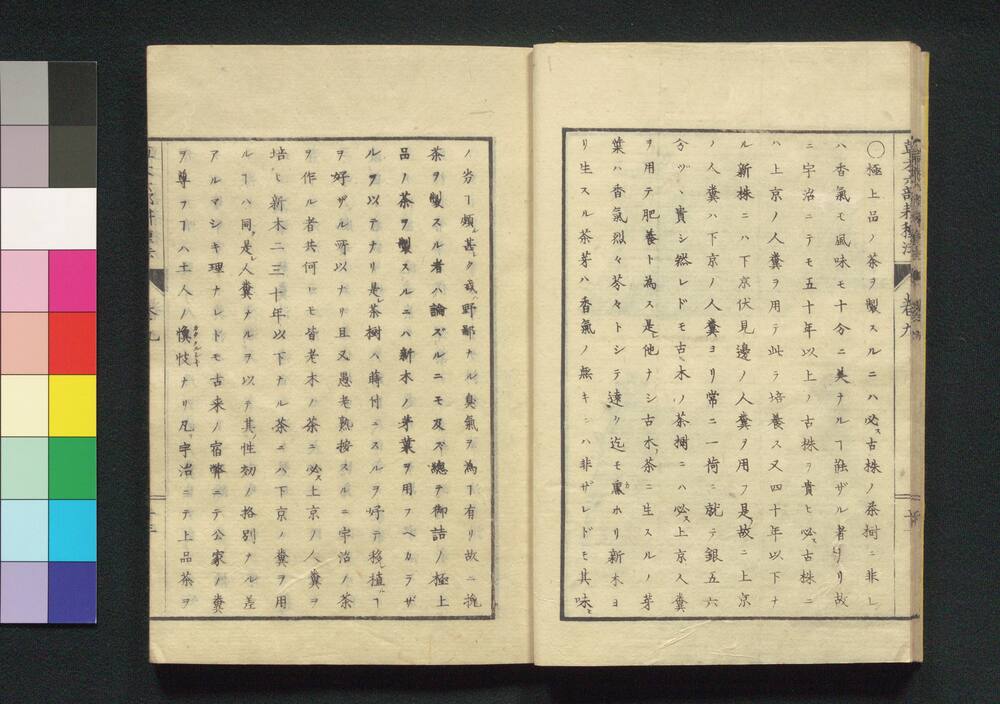 〇極上品ノ茶ヲ製スルニハ必ス古株ノ茶樹ニ非レ
ハ香氣モ風味モ十分ニ美ナルヿ能ザル者ナリ故
ニ宇治ニテモ五十年以上ノ古株ヲ貴ヒ必ス古株ニ
ハ上京ノ人糞ヲ用テ此ヲ培養ス又四十年以下ナ
ル新株ニハ下京伏見邊ノ人糞ヲ用フ是故ニ上京
ノ人糞ハ下京ノ人糞ヨリ常ニ一荷ニ就テ銀五六
分ヅヽ貴シ然レドモ古木ノ茶樹ニハ必ス上京人糞
ヲ用テ肥養ト為ス是レ他ナシ古木茶ニ生スルノ芽
葉ハ香氣烈々芬々トシテ遠ク迄モ薫ホリ新木ヨ
リ生スル茶芽ハ香氣ノ無キニハ非ザレドモ其味ヒ
草木六部耕種法 卷九
ノ劣ヿ頗ル甚ク或野鄙ナル臭氣ヲ為ヿ有リ故ニ挽
茶ヲ製スル者ハ論ズルニモ及ズ總テ御詰ノ極上
品ノ茶ヲ製スルニハ新木ノ芽葉ヲ用フベカラザ
ルヲ以テナリ是レ茶樹ハ蒔付ニスルヲ好テ移シ植ルヿ
ヲ好ザル所以ナリ且又愚老熟按スルニ宇治ノ茶
ヲ作ル者共何レモ皆老木ノ茶ニ必ス上京ノ人糞ヲ
培ヒ新木二三十年以下ナル茶ニハ下京ノ糞ヲ用
ルヿハ同ク是レ人糞ナルヲ以テ其性効ノ格別ナル差
アルマシキ理ナレドモ古来ノ宿弊ニテ公家ノ糞
ヲ尊フヿハ土人ノ ナリ凡ソ宇治ニテ上品茶ヲ
卷九